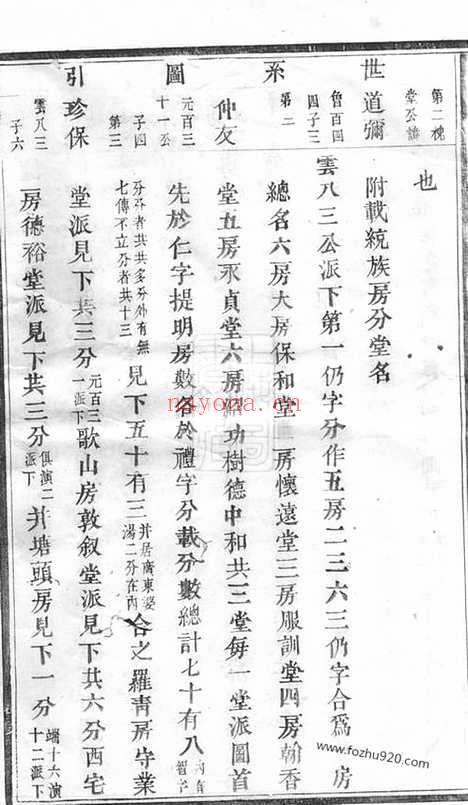 第二桃
堂公諱
也
附載統族房分堂名
世道彌
魯百四
四子三
雲八三公派下第一仍字分作五房二三六三仍字合為 房
系
第二
總名六房大房保和堂二房懷遠堂三房服訓堂四房翰香
仲友
堂五房永貞堂六房 功樹德中和共三堂每一堂派圖首
圖
元百三
十一公
先於仁字提明房數名於禮字分載分數總計七十有八 內有智字
子四
第三
分分者共共多分外有無
七傳不立分者共十三
見下五十有三
并居廣東婺
湯二分在內
合之羅青房守業
引珍保
堂派見下共三分
元百三
一派下
歌山房敦敘堂派見下共六分西宅
雲八三
子六
房德裕堂派見下共三分
俱演二
派下
井塘頭房見下一分
端十六演
十二派下
nayona.cn
www.fozhu920.com